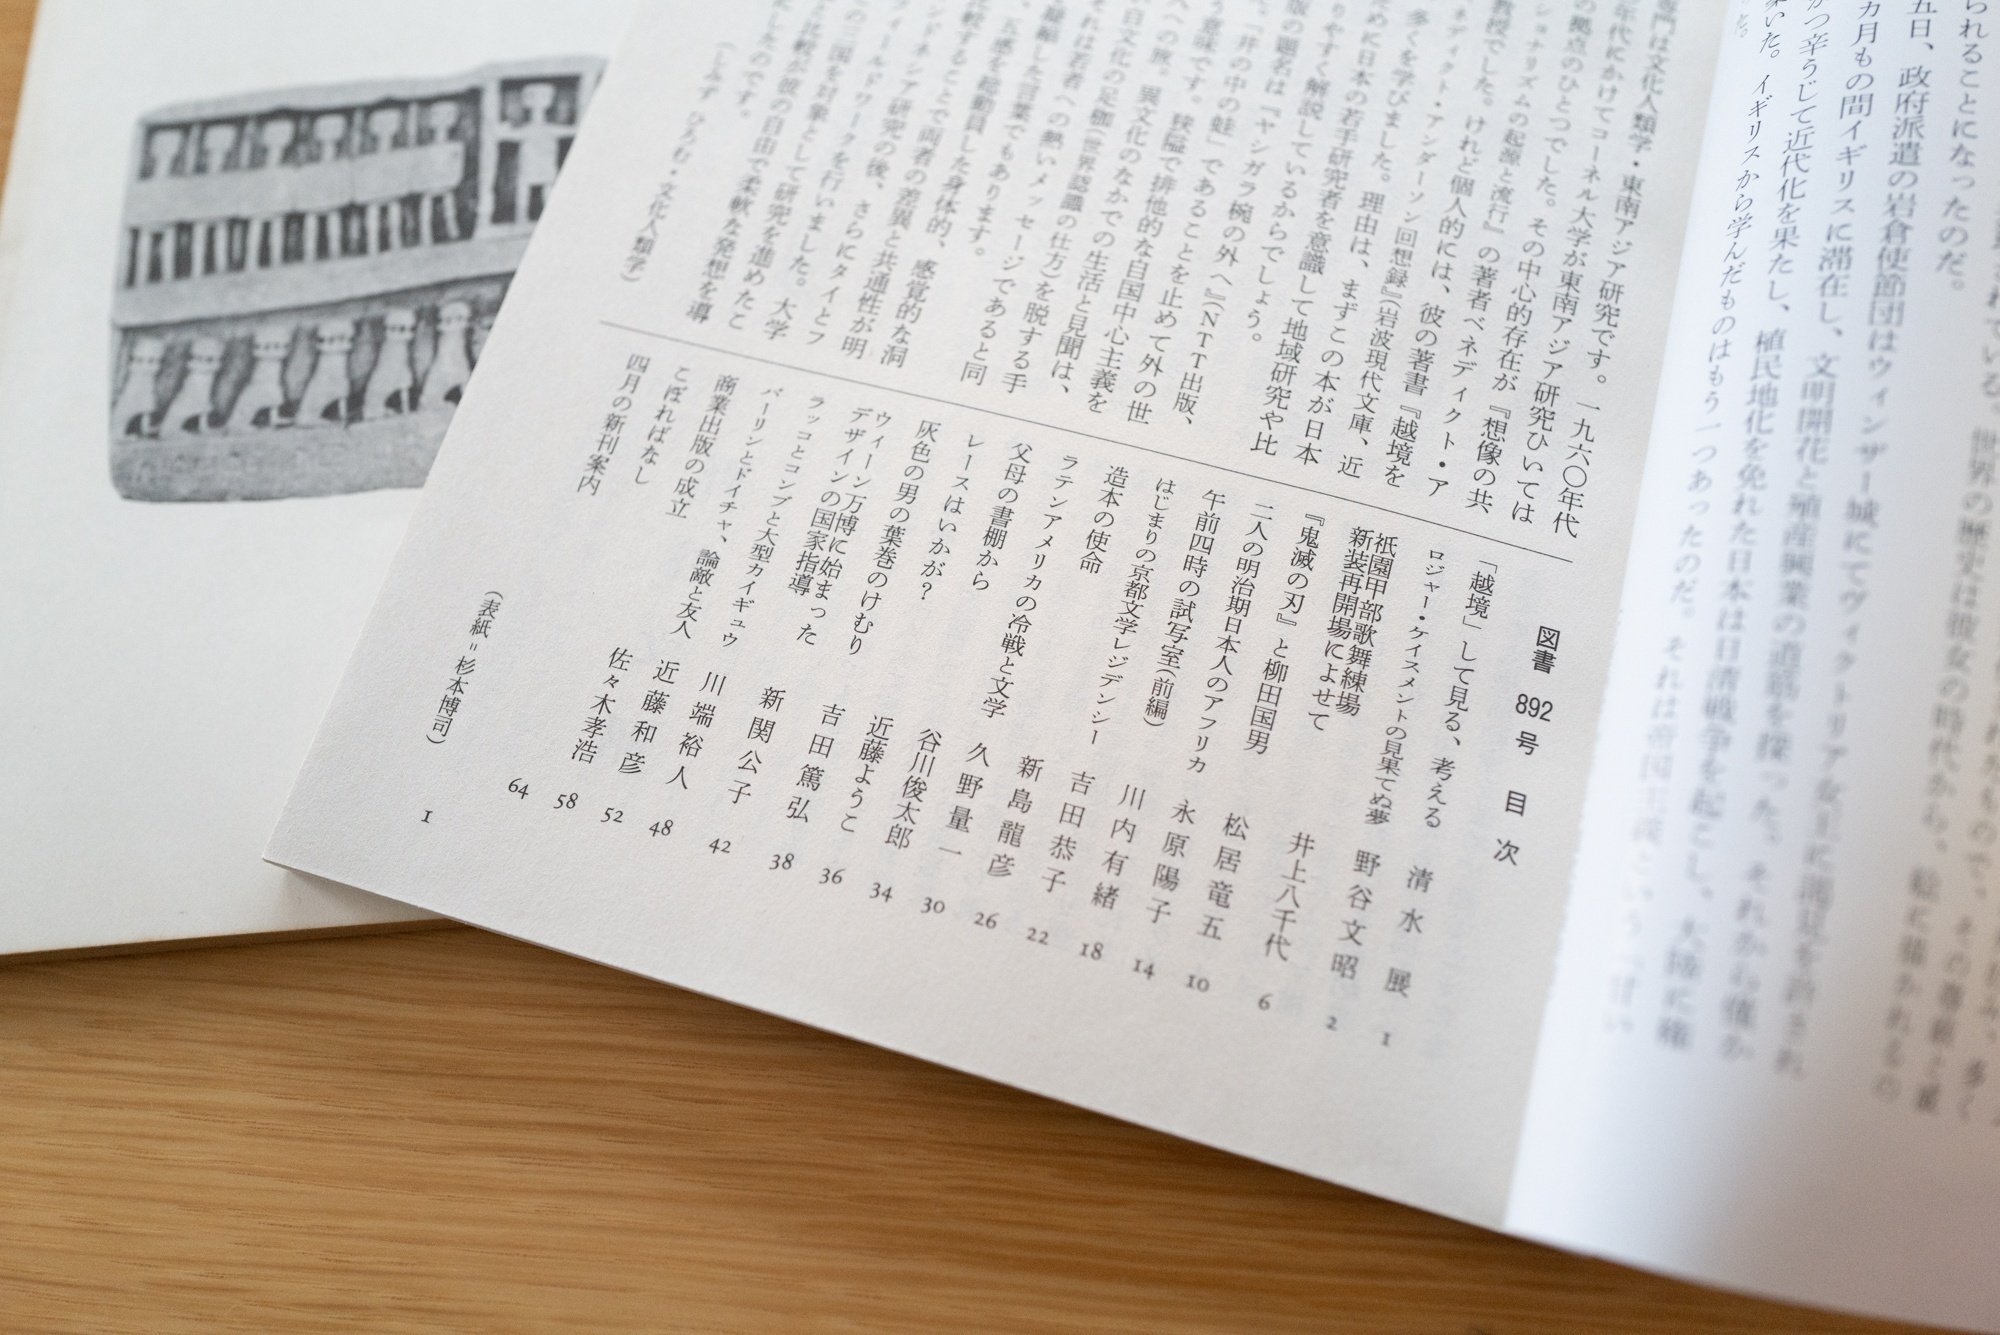 られることになったのだ。
五日、政府派遣の岩倉使節団はウィンザー城にてヴィクトリア女王に謁見を許され
カ月もの間イギリスに滞在し、文明開花と殖産興業の道筋を採った。それから僅か
つ辛うじて近代化を果たし、植民地化を免れた日本は日清戦争を起こし、大陸に権
いた。イギリスから学んだものはもう一つあったのだ。それは帝国主義という
専門は文化人類学・東南アジア研究です。一九六〇年代
年代にかけてコーネル大学が東南アジア研究ひいては
ショナリズムの起源と流行』の著者ベネディクト・ア
の拠点のひとつでした。その中心的存在が『想像の共
教授でした。けれど個人的には、彼の著書『越境を
ネディクト・アンダーソン回想録』(岩波現代文庫、近
多くを学びました。理由は、まずこの本が日本
ために日本の若手研究者を意識して地域研究や比
りやすく解説しているからでしょう。
版の題名は『ヤシガラ椀の外へ』(NTT出版、
「井の中の蛙」であることを止めて外の世
意味です。狭隘で排他的な自国中心主義を
への旅、異文化のなかでの生活と見聞は、
日文化の足枷(世界認識の仕方)を脱する手
それは若者への熱いメッセージであると同
凝縮した言葉でもあります。
五感を総動員した身体的、感覚的な洞
比較することで両者の差異と共通性が明
ンドネシア研究の後、さらにタイとフ
フィールドワークを行いました。大学
の三国を対象として研究を進めたこ
比較が彼の自由で柔軟な発想を導
したのです。
(しみず ひろむ・文化人類学)
図書 892号 目次
「越境」して見る、考える 清水 展 1
ロジャー・ケイスメントの見果てぬ夢 野谷文昭 2
祇園甲部歌舞練場
新装再開場によせて 井上八千代 6
『鬼滅の刃』と柳田国男 松居竜五 10
二人の明治期日本人のアフリカ 永原陽子 14
午前四時の試写室(前編) 川内有緒 18
はじまりの京都文学レジデンシー 吉田恭子 22
造本の使命 新島龍彦 26
ラテンアメリカの冷戦と文学 久野量一 30
父母の書棚から 谷川俊太郎 34
レースはいかが? 近藤ようこ 36
灰色の男の葉巻のけむり 吉田篤弘 38
ウィーン万博に始まった
デザインの国家指導 新関公子 42
ラッコとコンブと大型カイギュウ 川端裕人 48
バーリンとドイチャ、論敵と友人 近藤和彦 52
商業出版の成立 佐々木孝浩 58
こぼればなし 64
四月の新刊案内 1
(表紙=杉本博司)